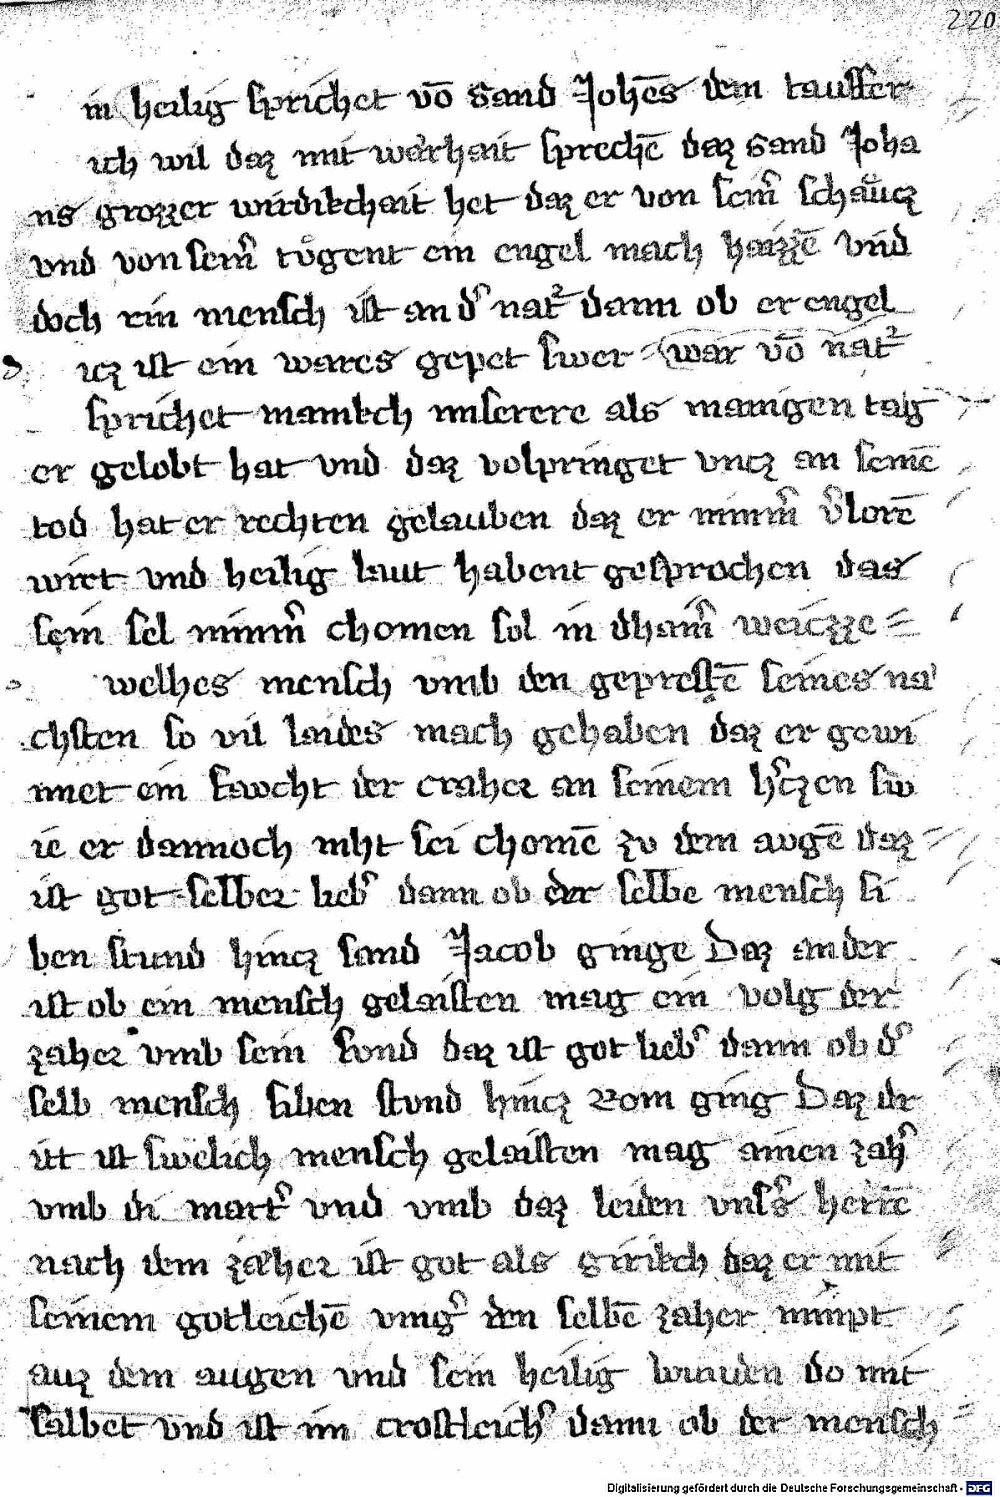 220
in heilig sprichet vō Sand Johēs dem tauffer
ich wil daz mit warhait sprechē daz Sand Joha
ns grozzer wirdikchait het daz er von seim̄ schaucz
vnd von seim̄ tůgent ein engel mach haizzē vnd
doch ein mensch ist an d' nat² dann ob er engel
icz ist ein wares gepet swer war vō nat²
sprichet manikch miserere als manigen tag
er gelobt hat vnd daz volpringet vncz an seinē
tod hat er rechten gelauben daz er nimm' v'lorē
wirt vnd heilig laut habent gesprochen das
sein sel nimm' chomen sol in dhain' weiczze
welhes mensch vmb den geprestē seines na
chsten so vil laides mach gehaben daz er gewi
nnet ein fawcht der craher an seinem h'czen sw
ie er dannoch niht sei chomē zu dem augē daz
ist got selber lieb' dann ob der selbe mensch si
ben stund hincz sand Jacob ginge Daz ander
ist ob ein mensch gelaisten mag ein volg der
zaher vmb sein sund daz ist got lieb' dann ob d'
selb mensch siben stvnd hincz Rom ging Daz dr
itt ist swelich mensch gelaisten mag ainen zah'
vmb di mart' vnd vmb daz leiden vns' herrē
nach dem zaher ist got als girikch daz er mit
seinem gotleichē ving' den selbē zaher nimpt
auz dem augen vnd sein heilig wunden do mit
salbet vnd ist im trostleich' dann ob der mensch
Digitalisierung gefördert durch die Deutsche Forschungsgemeinschaft - DFG